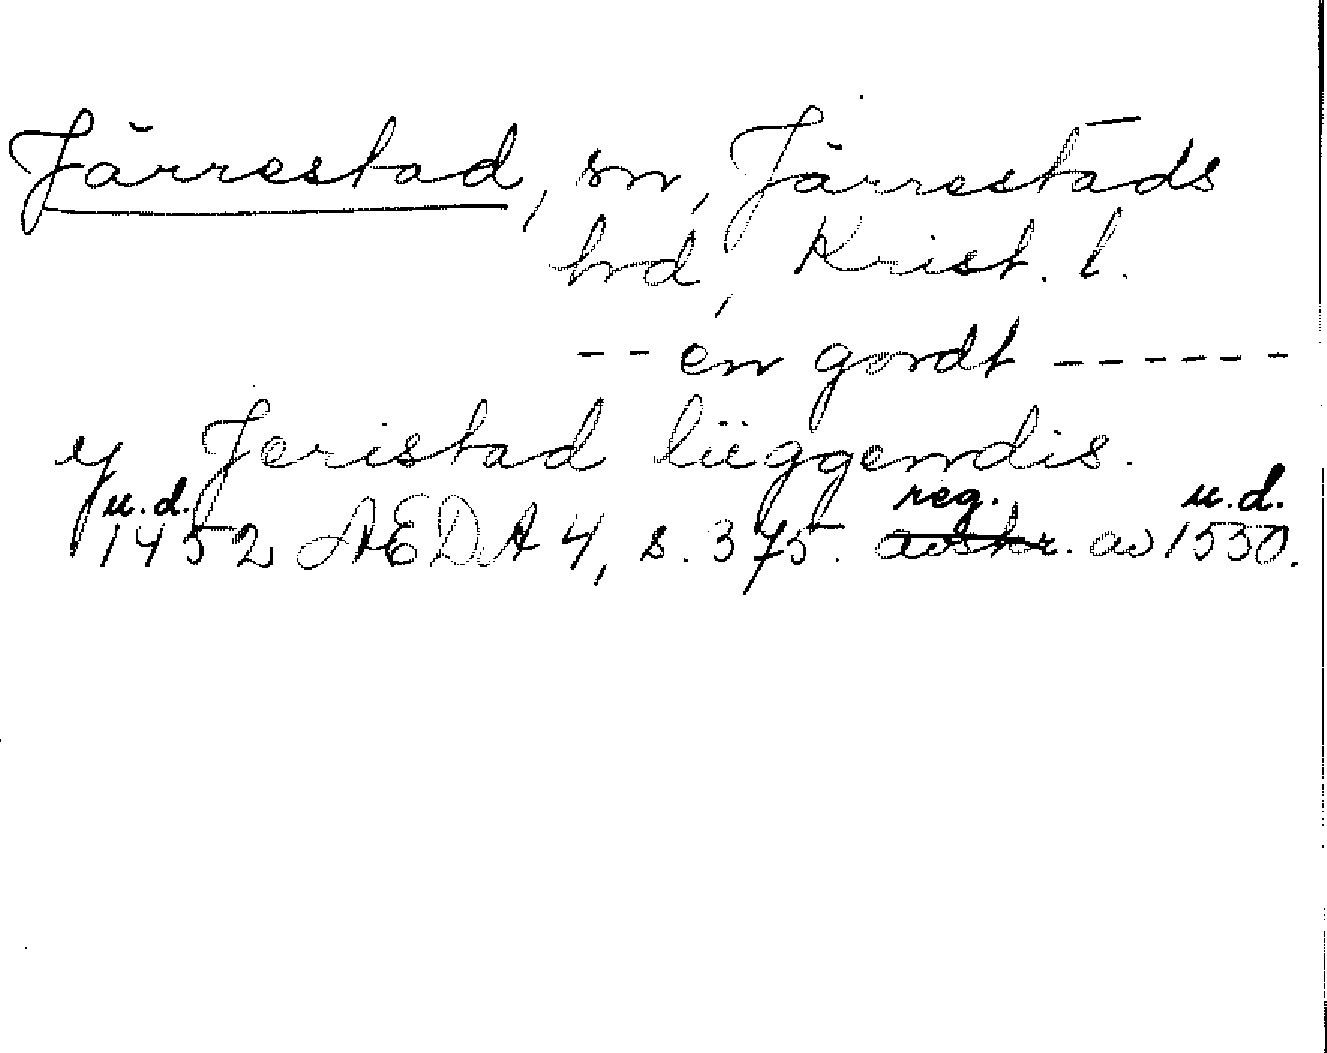 Järrestad, sn, Järrestads
hrd, Krist. l.
-- en gordt ------
y Jeristad lüggendis.
u.d. reg. u.d.
1452 AEDA 4, s. 375. avskr. av 1550.